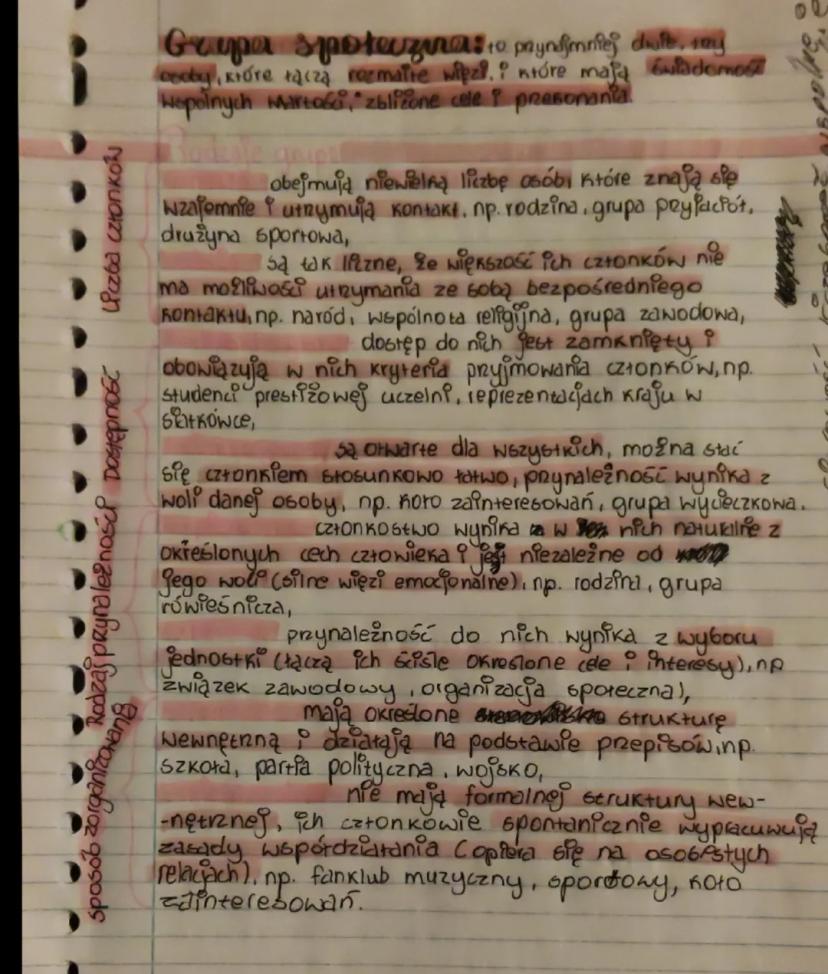 Grupa społeczna: to przynajmniej dwie, trzy
osoby, które łączą rozmaite więzi, i które mają świadomość
wspólnych wartości, zbliżone cele i przekonania.
Rodzaje grup:
Liczba członków
obejmują niewielką liczbę osób, które znają się
wzajemnie i utrzymują kontakt, np. rodzina, grupa przyjaciół,
drużyna sportowa,
są tak liczne, że większość ich członków nie
ma możliwości utrzymania ze sobą bezpośredniego
kontaktu, np. naród, wspólnota religijna, grupa zawodowa,
Dostępność
dostęp do nich jest zamknięty i
obowiązują w nich kryteria przyjmowania członków, np.
studenci prestiżowej uczelni, reprezentacjach kraju w
siatkówce,
są otwarte dla wszystkich, można stać
się członkiem stosunkowo łatwo, przynależność wynika z
woli danej osoby, np. koło zainteresowań, grupa wycieczkowa.
Rodzaj przynależności
członkostwo wynika w nich naturalnie z
określonych cech człowieka i jest niezależne od
jego woli (silne więzi emocjonalne), np. rodzina, grupa
rówieśnicza,
przynależność do nich wynika z wyboru
jednostki (łączą ich ściśle określone cele i interesy), np
związek zawodowy, organizacja społeczna),
sposób zorganizowania
mają określone strukturę
wewnętrzną i działają na podstawie przepisów, np.
szkoła, partia polityczna, wojsko,
nie mają formalnej struktury wew-
-nętrznej, ich członkowie spontanicznie wypracuwują
zasady współdziałania (opiera się na osobistych
relacjach), np. fanklub muzyczny, sportowy, koło
zainteresowań.